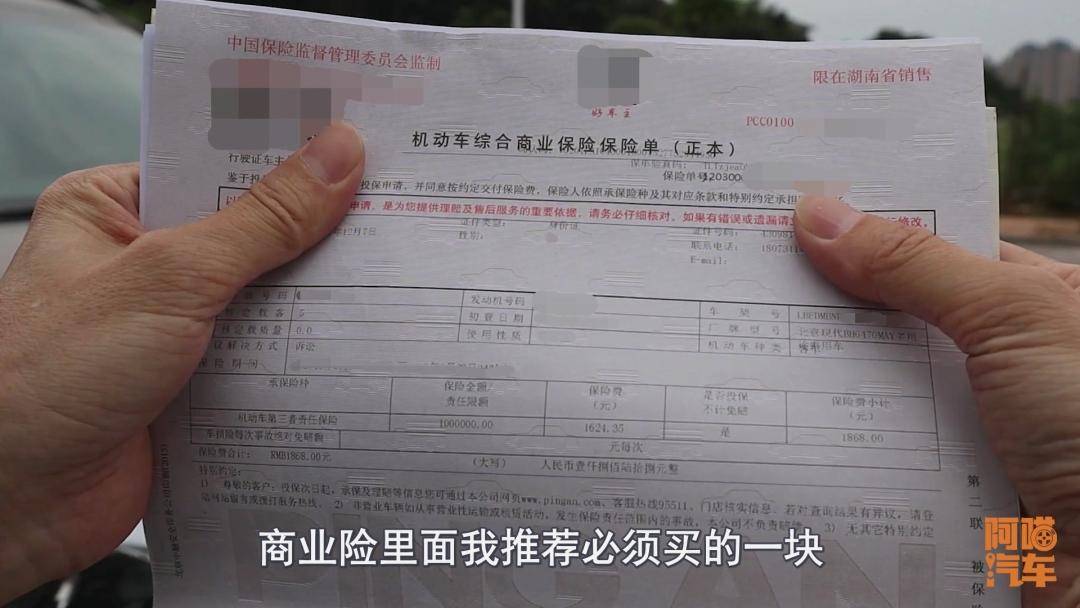 中国保险监督管理委员会监制
限在湖南省销售
好车主
PCC0100
机动车综合商业保险保险单（正本）
行驶证车主
保单验真码：
保险单号：
鉴于投 投保申请，并同意按约定交付保险费，保险人依照承保险种及其对应条款和特别约定承担
以 申请，是为您提供理赔及售后服务的重要依据，请务必仔细核对。如果有错误或遗漏请 修改。
证件类型： 身份证 证件号码：
12月7日 性别： 联系电话：
E-mail：
号码 发动机号码 车架号 LBEDMBNE
核定载客 5 初登日期 厂牌型号
核定载质量 0.0 使用性质 机动车种类 客车
争议解决方式 诉讼
保险期间
承保险种 保险金额/责任限额 保险费（元） 是否投保不计免赔 保险费小计（元）
机动车第三者责任保险 1000000.00 1624.35 是 1868.00
车损险每次事故绝对免赔额 元每次
保险费合计： RMB1868.00元 （大写） 人民币壹仟捌佰陆拾捌元整
特别约定：
1) 尊敬的客户：投保次日起，承保及理赔等信息您可通过本公司网页www.pingan.com、客服热线95511、门店核实信息。若对查询结果有异议，请登
站网站留言或拨打服务热线。 2) 非营业车辆如从事营业性运输或租赁活动，发生保险责任范围内的事故，本公司不负责赔偿。 3) 无其它特别约定
第二联 被保
PING AN
商业险里面我推荐必须买的一块
阿喵汽车